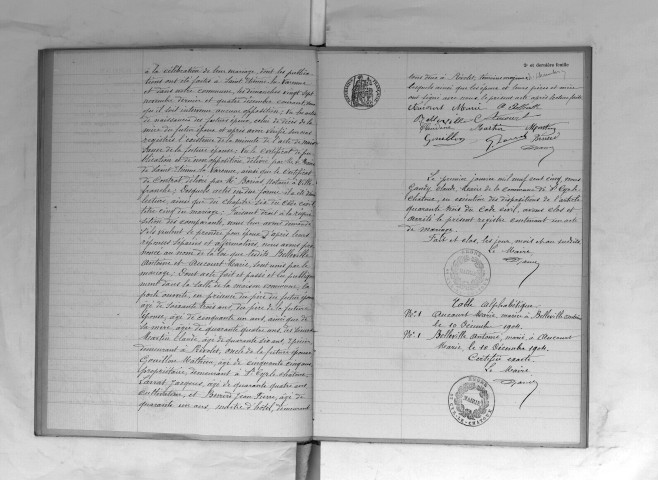 à la célébration de leur mariage, dont les publica-
tions ont été faites à Saint Denis la Varenne
et dans notre commune, les dimanches vingt sept
novembre dernier et quatre décembre courant, sans
qu'il soit intervenu aucune opposition; Vu les actes
de naissances des futurs époux, celui de décès de la
mère du futur époux et après avoir vérifié sur nos
registres l'existence de la minute de l'acte de nais-
sance de la future épouse; Vu le certificat de pu-
blication et de non opposition, délivré par le Maire
de Saint Denis la Varenne, ainsi que le certificat
de contrat délivré par Me notaire à Ville-
franche; Desquels actes en due forme il a été donné
lecture, ainsi que du chapitre six du Code civil,
titre cinq du mariage; Faisant droit à la réqui-
sition des comparants, nous leur avons demandé
s'ils veulent se prendre pour époux; D'après leurs
réponses séparées et affirmatives, nous avons pro-
noncé au nom de la loi que lesdits Belleville
Antoine et Aucourt Marie, sont unis par le
mariage; Dont acte fait et passé en public
dans la salle de la maison commune, la
porte ouverte, en présence du père du futur époux
âgé de soixante trois ans, du père de la future
épouse, âgé de cinquante un ans, ainsi que de
sa mère, âgée de quarante quatre ans, des sieurs
Martin Claude, âgé de quarante six ans,
demeurant à Rivolet, oncle de la future épouse
Mathieu, âgé de cinquante
propriétaire, demeurant à St Cyr le Chatoux
Jacques, âgé de quarante quatre ans
cultivateur, et Jean Pierre, âgé de
quarante un ans, maître d'hôtel, demeurant
2e et dernière feuille
tous deux à Rivolet, témoins
lesquels ainsi que les époux et leurs pères et mère
ont signé avec nous le présent acte après lecture faite.
Aucourt Marie A Belleville
Belleville C Aucourt
Claudine Martin
Le premier janvier mil neuf cent cinq, nous
Claude, Maire de la commune de St Cyr le
Chatoux, en exécution des dispositions de l'article
quarante trois du Code civil, avons clos et
arrêté le présent registre contenant un acte
de mariage.
Fait et clos, les jour, mois et an susdits.
Le Maire
MAIRIE
Table Alphabétique
No 1 Aucourt Marie, mariée à Belleville Antoine
le 10 Décembre 1904.
No 1 Belleville Antoine, marié à Aucourt
Marie, le 10 Décembre 1904.
Certifié exacte
Le Maire
RHONE
MAIRIE
ST CYR-LE-CHATOUX